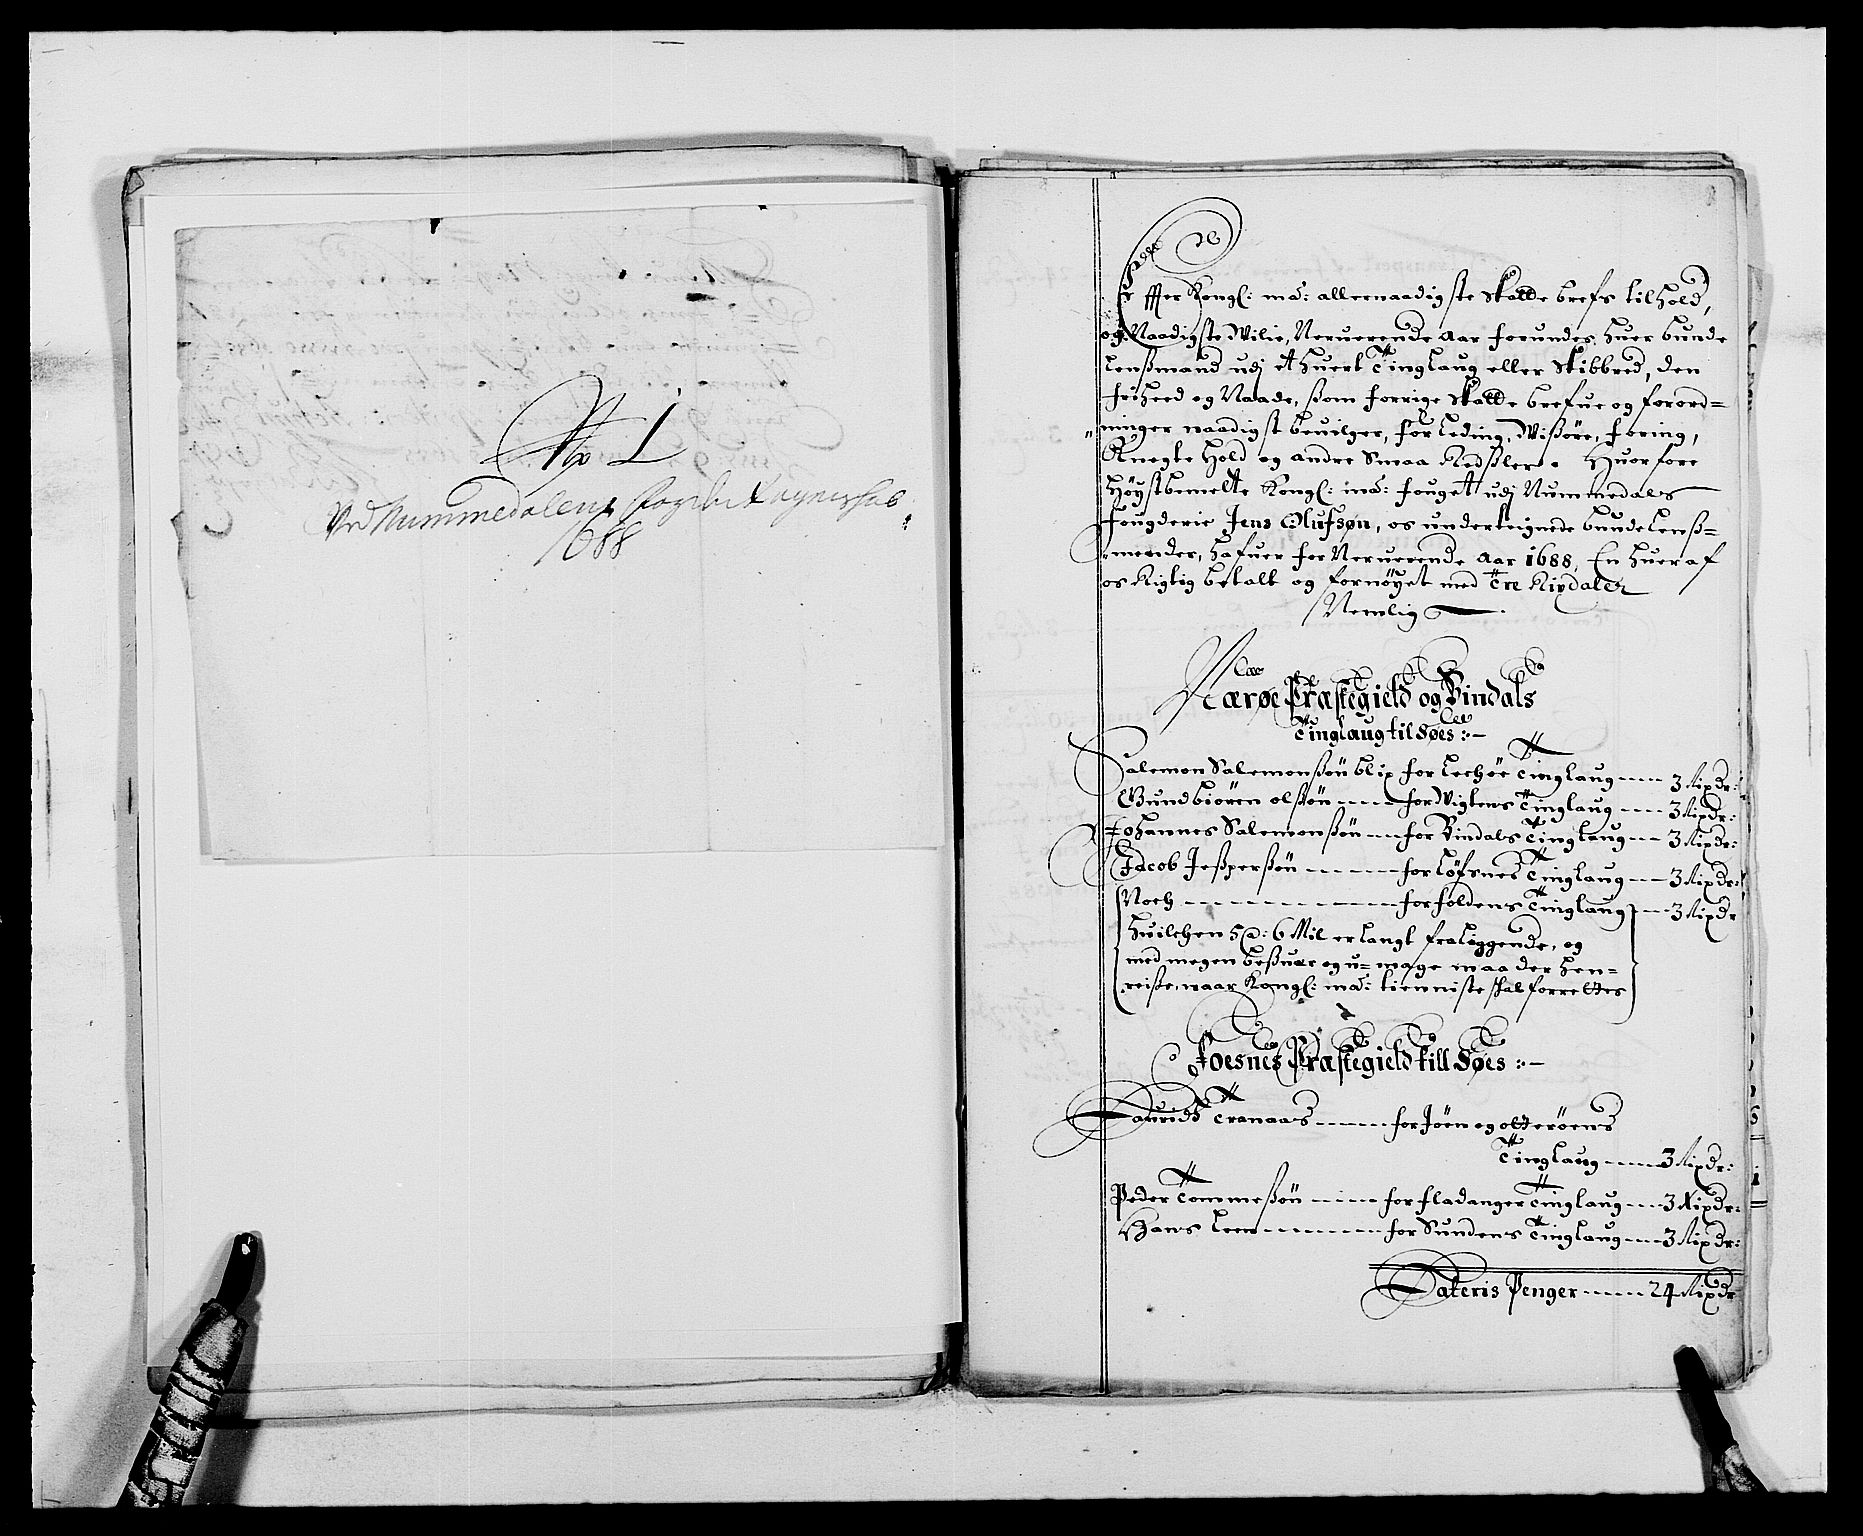 No 1
Ved Nummedalens fogderi Regnschab
1688
Effter Kongl: ma: allernaadigste Skatte brefs tilhold,
og Naadigste Wilie, Neruerende Aar forundes huer bunde
Lenßmand udj et huert Tinglaug eller Skibbred, den
friheed og Naade, ßom forrige Skatte brefue og forord=
ninger naadigst beuilger, for Leding, Wißöre, foring,
Knegte hold og andre Smaa Redßler. Huorfore
Høystbemelte Kongl: ma: fouget udj Nummedals
fougderie Jens Olufsøn, os underteignede bundelenß=
mender, hafuer for Neruerende Aar 1688, En huer af
os Rigtig betalt og fornøyet med Tre Rixdaler
Nemlig
Nærøe Præstegield og Bindals
Tinglaug til Søes :-
Salemon Salemonßön blix for Lechöe Tinglaug --- 3 Rixdr:
Gundbiören olßön ---- for Wigtens Tinglaug --- 3 Rixdr:
Johannes Salemonßön --- for Bindals Tinglaug --- 3 Rixdr:
Jacob Jeßperßön ----- for Löfsnes Tinglaug --- 3 Rixdr:
Noch ---------- for foldens Tinglaug --- 3 Rixdr
huilchen 5 a: 6 Mil er langt fraliggende, og
med megen beßuær og u=mage maa der hen=
reiße, naar Kongl: ma: tienniste skal forrettes
Foesnes Præstegield till Søes :-
Lauridtz Tranaas ---- for Jöen og otteröens
Tinglaug ---- 3 Rixdr:
Peder Tommeßön ---- for fladanger Tinglaug --- 3 Rixdr:
Hans Leen ------- for Sundens Tinglaug --- 3 Rixdr:
Lateris Penger ---- 24 Rixdr